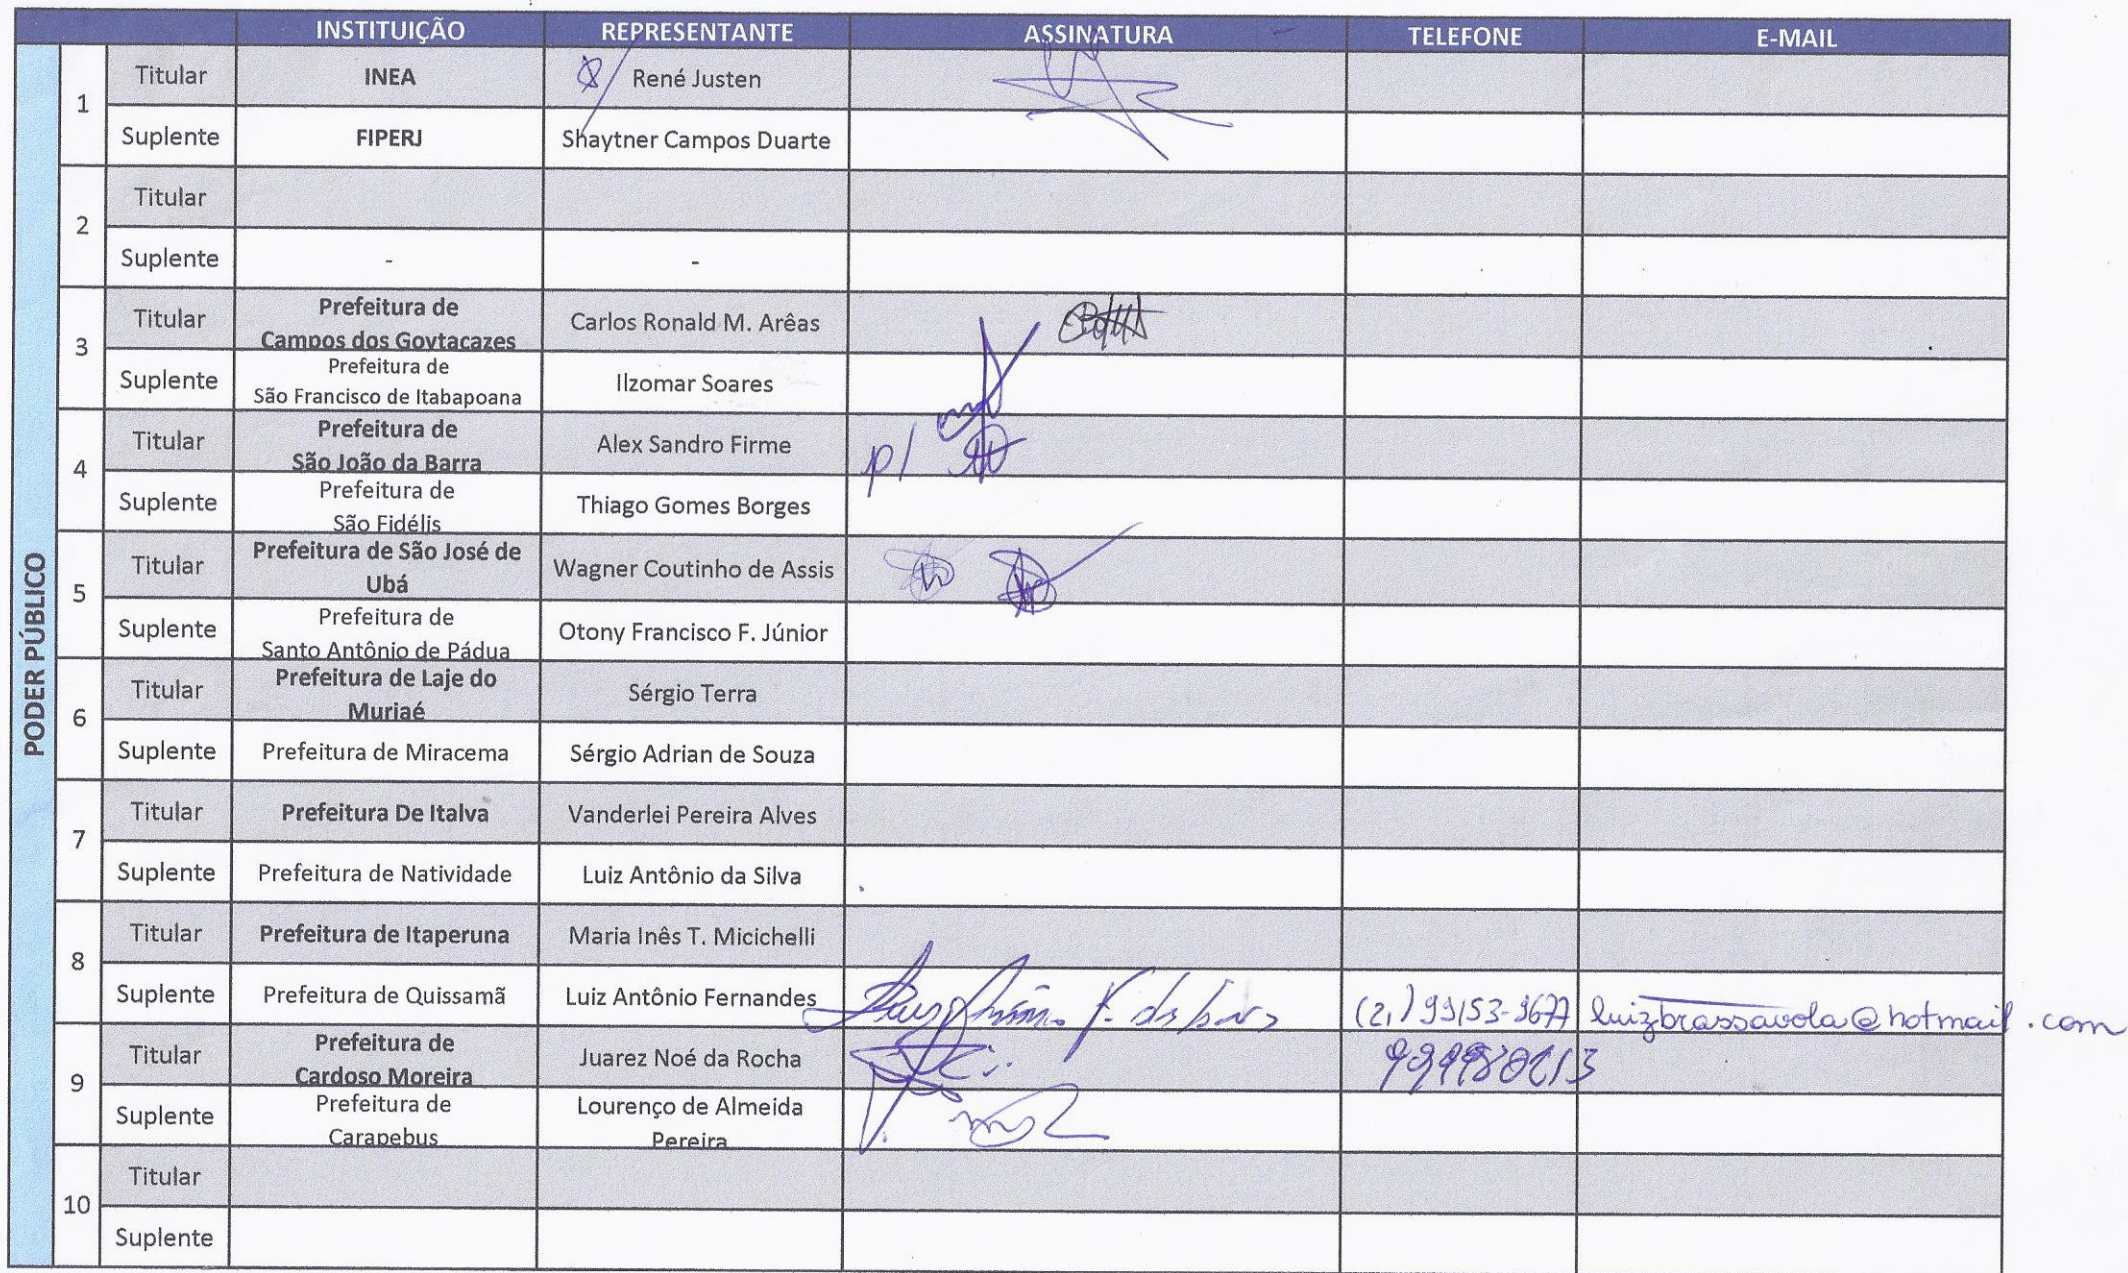 INSTITUIÇÃO REPRESENTANTE ASSINATURA TELEFONE E-MAIL
PODER PÚBLICO
1
Titular INEA René Justen
Suplente FIPERJ Shaytner Campos Duarte
2
Titular
Suplente - -
3
Titular Prefeitura de
Campos dos Goytacazes Carlos Ronald M. Arêas
Suplente Prefeitura de
São Francisco de Itabapoana Ilzomar Soares
4
Titular Prefeitura de
São João da Barra Alex Sandro Firme p/
Suplente Prefeitura de
São Fidélis Thiago Gomes Borges
5
Titular Prefeitura de São José de
Ubá Wagner Coutinho de Assis
Suplente Prefeitura de
Santo Antônio de Pádua Otony Francisco F. Júnior
6
Titular Prefeitura de Laje do
Muriaé Sérgio Terra
Suplente Prefeitura de Miracema Sérgio Adrian de Souza
7
Titular Prefeitura De Italva Vanderlei Pereira Alves
Suplente Prefeitura de Natividade Luiz Antônio da Silva
8
Titular Prefeitura de Itaperuna Maria Inês T. Micichelli
Suplente Prefeitura de Quissamã Luiz Antônio Fernandes luizbrassavola@hotmail.com
9
Titular Prefeitura de
Cardoso Moreira Juarez Noé da Rocha
Suplente Prefeitura de
Carapebus Lourenço de Almeida
Pereira
10
Titular
Suplente